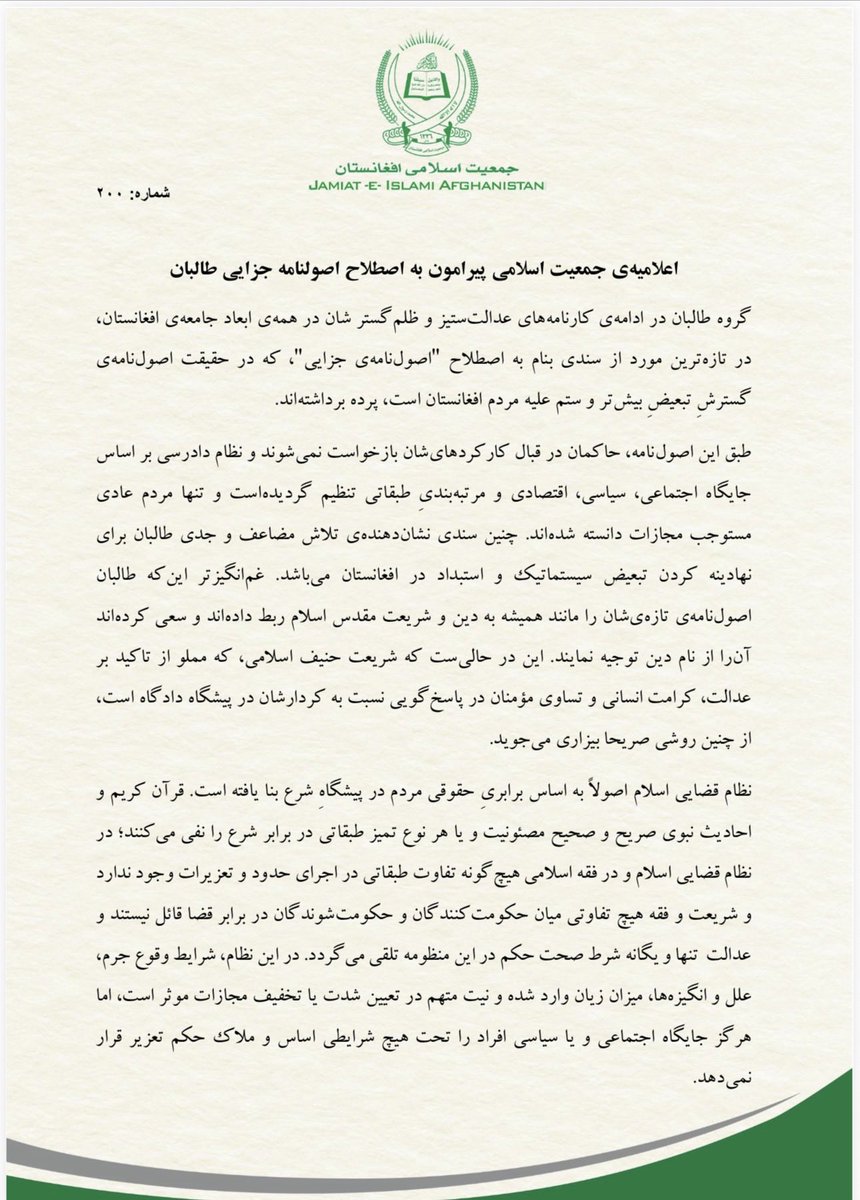 ۱۳۳۶
جمعیت اسلامی افغانستان
JAMIAT -E- ISLAMI AFGHANISTAN
شماره: ۲۰۰
اعلامیه‌ی جمعیت اسلامی پیرامون به اصطلاح اصولنامه جزایی طالبان
گروه طالبان در ادامه‌ی کارنامه‌های عدالت‌ستیز و ظلم‌گستر شان در همه‌ی ابعاد جامعه‌ی افغانستان،
در تازه‌ترین مورد از سندی بنام به اصطلاح "اصول‌نامه‌ی جزایی"، که در حقیقت اصول‌نامه‌ی
گسترشِ تبعیضِ بیش‌تر و ستم علیه مردم افغانستان است، پرده برداشته‌اند.
طبق این اصول‌نامه، حاکمان در قبال کارکردهای‌شان بازخواست نمی‌شوند و نظام دادرسی بر اساس
جایگاه اجتماعی، سیاسی، اقتصادی و مرتبه‌بندیِ طبقاتی تنظیم گردیده‌است و تنها مردم عادی
مستوجب مجازات دانسته شده‌اند. چنین سندی نشان‌دهنده‌ی تلاش مضاعف و جدی طالبان برای
نهادینه کردن تبعیض سیستماتیک و استبداد در افغانستان می‌باشد. غم‌انگیزتر این‌که طالبان
اصول‌نامه‌ی تازه‌ی‌شان را مانند همیشه به دین و شریعت مقدس اسلام ربط داده‌اند و سعی کرده‌اند
آن‌را از نام دین توجیه نمایند. این در حالی‌ست که شریعت حنیف اسلامی، که مملو از تاکید بر
عدالت، کرامت انسانی و تساوی مؤمنان در پاسخ‌گویی نسبت به کردارشان در پیشگاه دادگاه است،
از چنین روشی صریحا بیزاری می‌جوید.
نظام قضایی اسلام اصولاً به اساس برابریِ حقوقی مردم در پیشگاهِ شرع بنا یافته است. قرآن کریم و
احادیث نبوی صریح و صحیح مصئونیت و یا هر نوع تمیز طبقاتی در برابر شرع را نفی می‌کنند؛ در
نظام قضایی اسلام و در فقه اسلامی هیچ‌گونه تفاوت طبقاتی در اجرای حدود و تعزیرات وجود ندارد
و شریعت و فقه هیچ تفاوتی میان حکومت‌کنندگان و حکومت‌شوندگان در برابر قضا قائل نیستند و
عدالت تنها و یگانه شرط صحت حکم در این منظومه تلقی می‌گردد. در این نظام، شرایط وقوع جرم،
علل و انگیزه‌ها، میزان زیان وارد شده و نیت متهم در تعیین شدت یا تخفیف مجازات موثر است، اما
هرگز جایگاه اجتماعی و یا سیاسی افراد را تحت هیچ شرایطی اساس و ملاک حکم تعزیر قرار
نمی‌دهد.